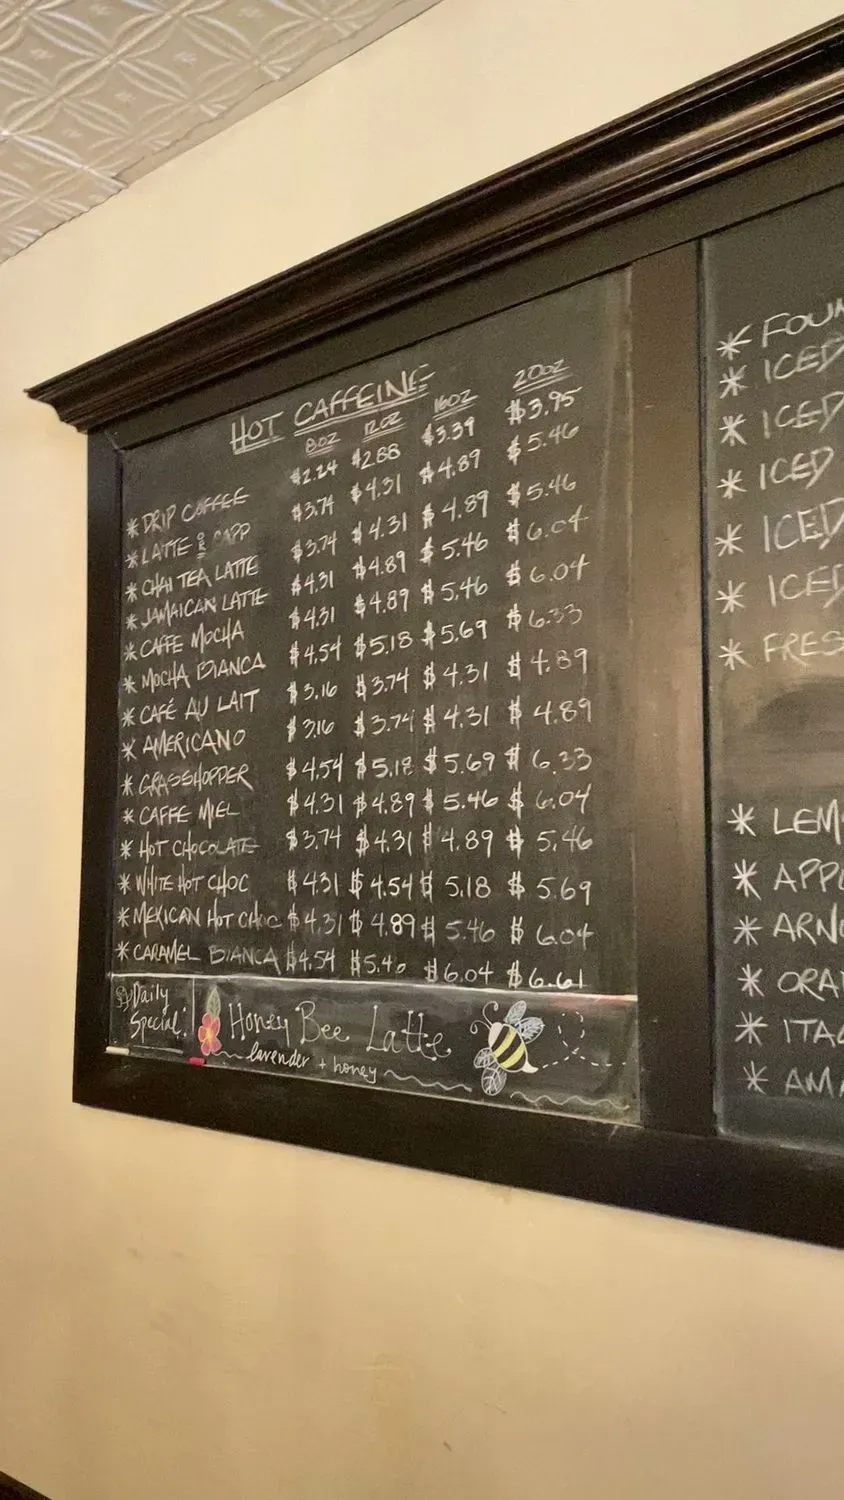 HOT CAFFEINE
8OZ 12OZ 16OZ 20OZ
* DRIP COFFEE $2.24 $2.88 $3.39 $3.95
* LATTE OR CAPP $3.74 $4.31 $4.89 $5.46
* CHAI TEA LATTE $3.74 $4.31 $4.89 $5.46
* JAMAICAN LATTE $4.31 $4.89 $5.46 $6.04
* CAFFE MOCHA $4.31 $4.89 $5.46 $6.04
* MOCHA BIANCA $4.54 $5.18 $5.69 $6.33
* CAFÉ AU LAIT $3.16 $3.74 $4.31 $4.89
* AMERICANO $3.16 $3.74 $4.31 $4.89
* GRASSHOPPER $4.54 $5.18 $5.69 $6.33
* CAFFE MIEL $4.31 $4.89 $5.46 $6.04
* HOT CHOCOLATE $3.74 $4.31 $4.89 $5.46
* WHITE HOT CHOC $4.31 $4.54 $5.18 $5.69
* MEXICAN HOT CHOC $4.31 $4.89 $5.46 $6.04
* CARAMEL BIANCA $4.54 $5.46 $6.04 $6.61
Daily
Special:
Honey Bee Latte
lavender + honey
* FOUN
* ICED
* ICED
* ICED
* ICED
* ICED
* FRES
* LEM
* APPL
* ARNO
* ORA
* ITAL
* AMA